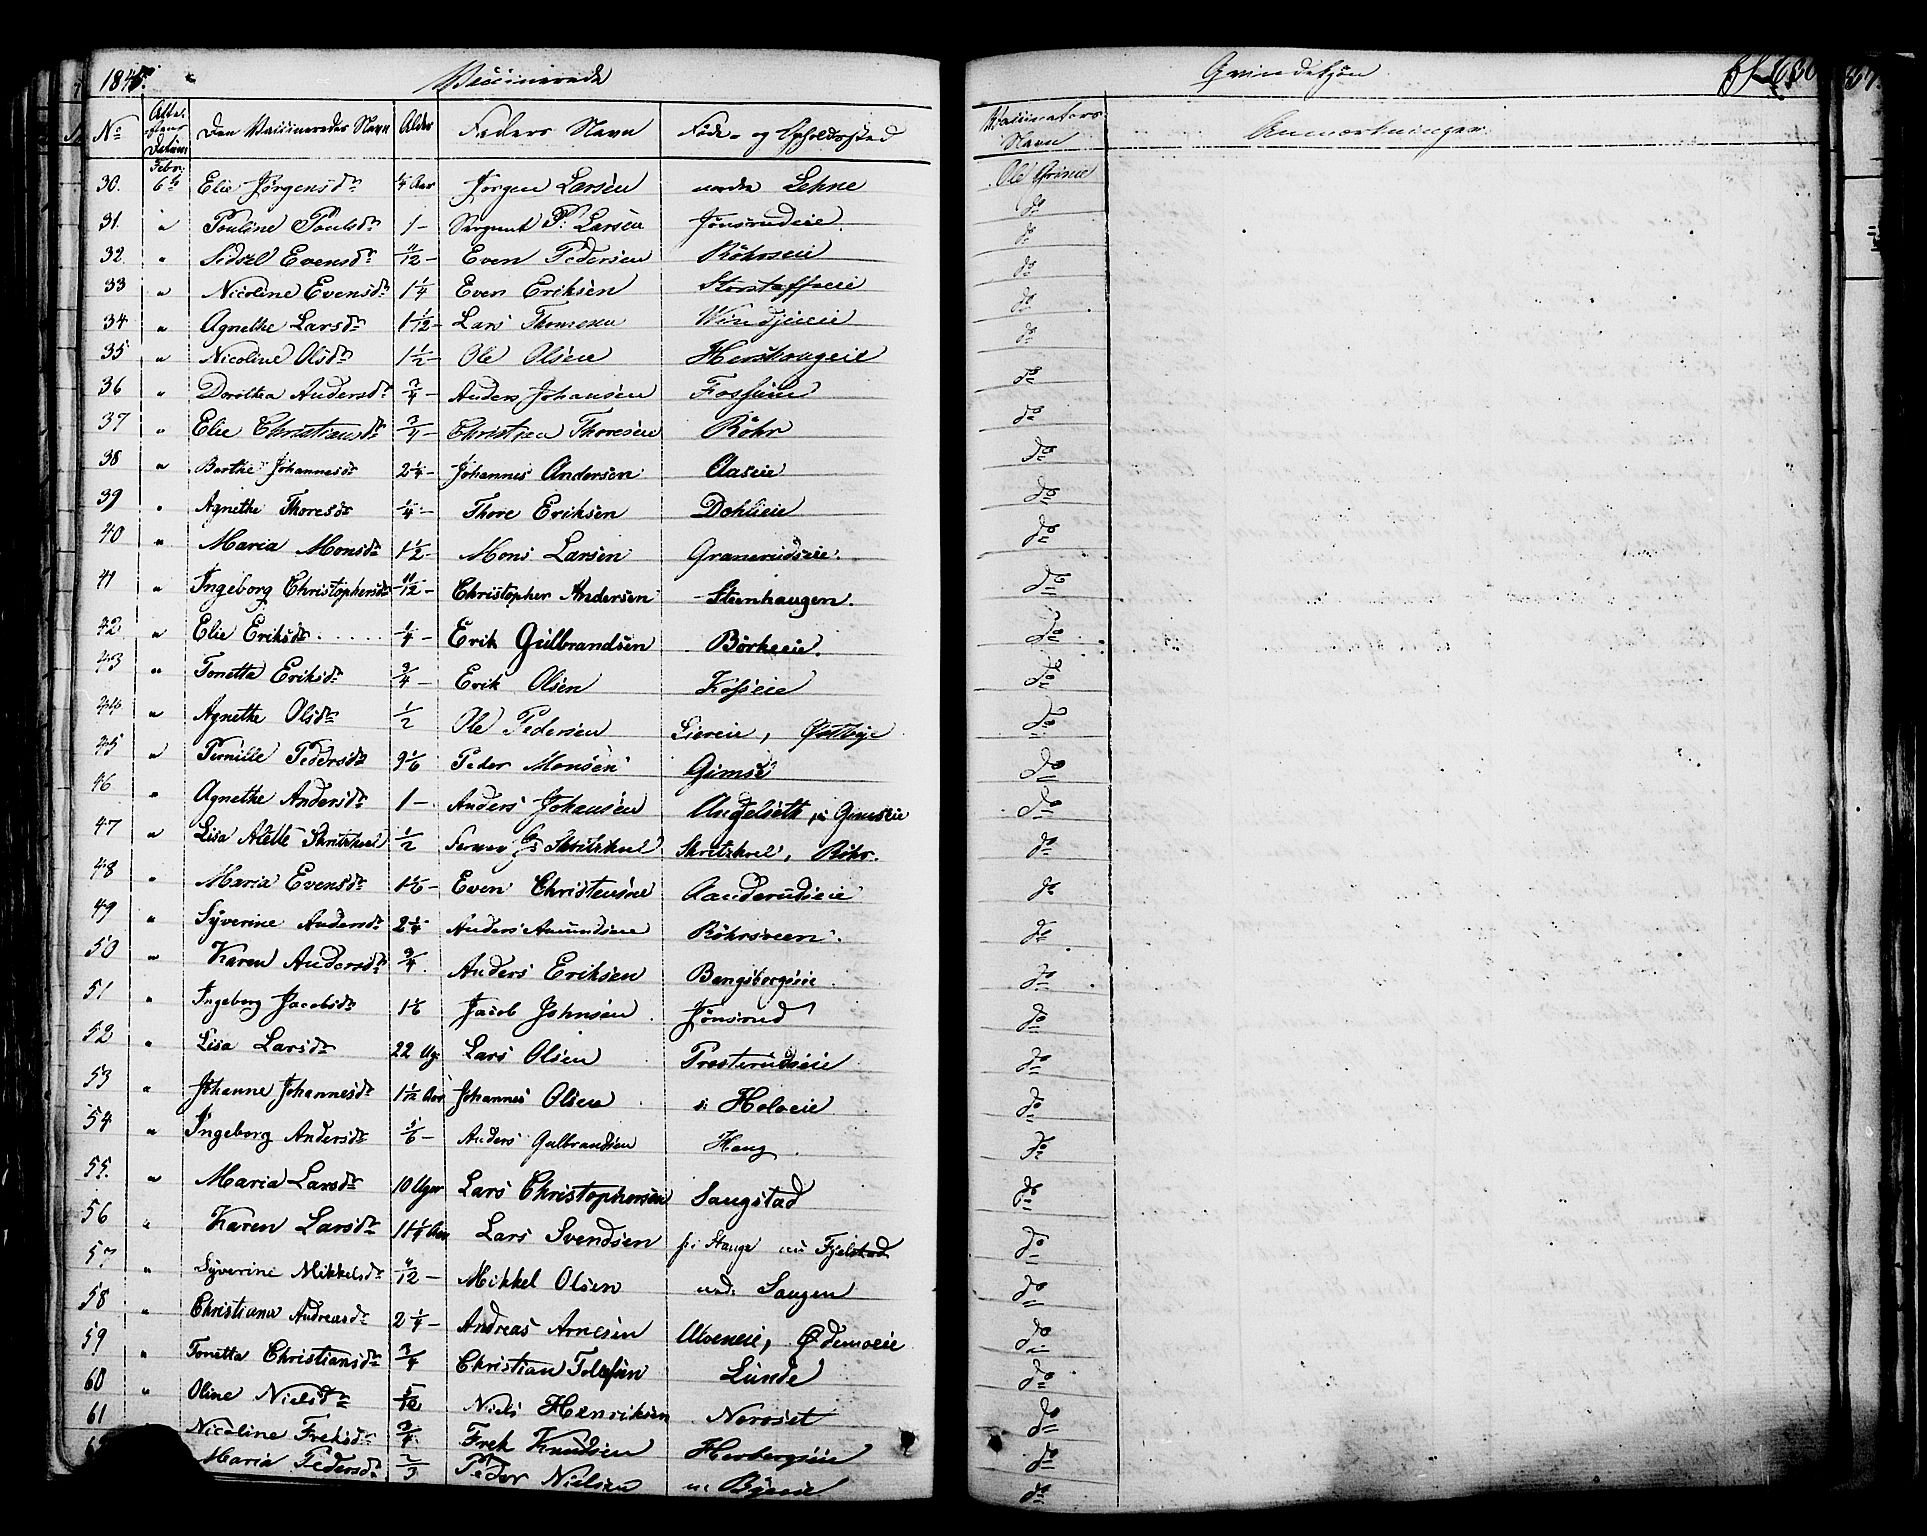 1845. Vaccinerede
No Den Vaccineredes Navn Alder Faders Navn Føde- og Opholdssted
30. Febr: 6te Elie Jørgensdr 1/4 Aar Jørgen Larsen nordre Lehne
31. " Pouline Poulsdr 1 - Sergeant P. Larsen Jønsrudeie
32. " Sidsel Evensdr 11/12 - Even Pedersen Röhrseie
33 " Nicoline Evensdr 1 1/4 Even Eriksen Storstaffseie
34 " Agnethe Larsdr 1 1/12 - Lars Thomesen
35 " Nicoline Olsdr 1 1/2 Ole Olsen Herskougeie
36 " Dorothea Andersdr 3/4 - Anders Johansen Fossum
37 " Elie Christiansdr 3/4 - Christian Thoresen Röhr
38 " Berthe Johannesdr 2 1/4 - Johannes Andersen Aaseie
39 " Agnethe Thoresdr 1/4 - Thore Eriksen Dohlieie
40 " Maria Monsdr 1 1/2 - Mons Larsen Granerudseie
41 " Ingeborg Christophersdr 11/12 - Christopher Andersen Steenhaugen.
42 " Elie Eriksdr. 1/4 - Erik Gulbrandsen Börkeeie.
43 " Tonetta Eriksdr 3/4 - Erik Olsen Koseie
44 " Agnethe Olsdr 1/2 Ole Pedersen Liereie, Østbye
45 " Pernille Pedersdr 9 1/6 Peder Monsen Gimse
46 " Agnethe Andersdr 1 - Anders Johansen Angelseth, Gimseie
47 " Lisa Alette Skritzkeel 1/2 Skritzkeel, Röhr.
48 " Maria Evensdr 1 1/6 - Even Christensen Aanderudseie
49 " Syverine Andersdr 2 1/4 - Anders Amundsen Röhrsveen.
50 " Karen Andersdr 3/4. Anders Eriksen Bergsbergseie
51 " Ingeborg Jacobsdr 1 1/6 Jacob Johnsen Jønsrud
52 " Lisa Larsdr 22 Ug: Lars Olsen Presterudseie
53 " Johanne Johannesdr 1 1/12 Aar Johannes Olsen s: Holoeie
54 " Ingeborg Andersdr 5/6 - Anders Gulbrandsen Haug
55. " Maria Larsdr 10 Uger Lars Christophersen Saugstad
56 " Karen Larsdr 1 1/4 Aar Lars Svendsen fr: Stange nu Fjelstad
57 " Syverine Mikkelsdr Mikkel Olsen ned: Saugen
58 " Christiana Andreasdr 2 1/4 - Andreas Arnesen Alveneie, Ødemoeie
59 " Tonetta Christiansdr 3/4 Christian Tolefsen Lunde
60 " Oline Nielsdr 5/12 Niels Henriksen Neroset
61 Nicoline Freksdr 3/4. Frek Knudsen Herbergseie
Maria Pedersdr 2/3 Peder Nielsen n: Byeeie
Qvindekjøn
Vaccinators Navn Anmærkninger.
Ole Grime
do
do
do
do
do
do
do
do
do
do
do
do
do
do
do
do
do
do
do
do
do
do
do
do
do
do
do
do
do
do
do
do